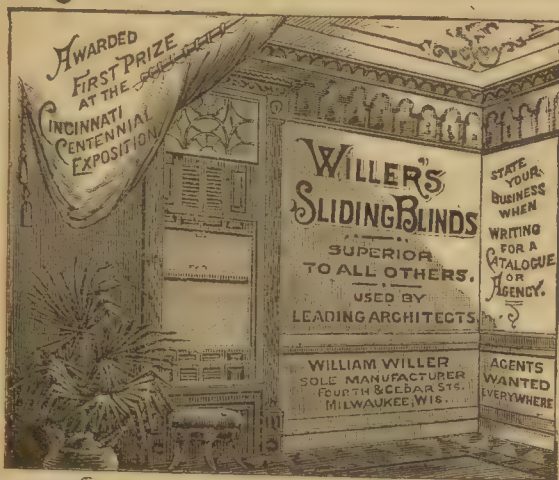 AWARDED
FIRST PRIZE
AT THE
CINCINNATI
CENTENNIAL
EXPOSITION.
WILLER'S
SLIDING BLINDS
SUPERIOR
TO ALL OTHERS.
USED BY
LEADING ARCHITECTS
WILLIAM WILLER
SOLE MANUFACTURER
FOURTH & CEDAR STS.
MILWAUKEE, WIS.
STATE
YOUR
BUSINESS
WHEN
WRITING
FOR A
CATALOGUE
OR
AGENCY.
AGENTS
WANTED
EVERYWHERE